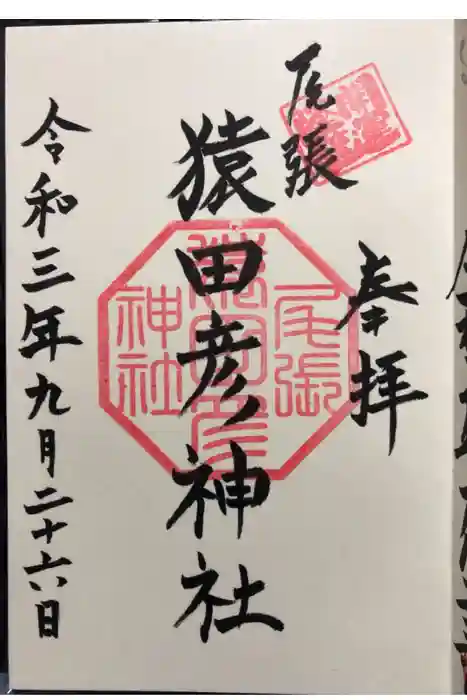 奉拝
尾張
猿田彦神社
尾張
猿田彦
神社
令和三年九月二十六日